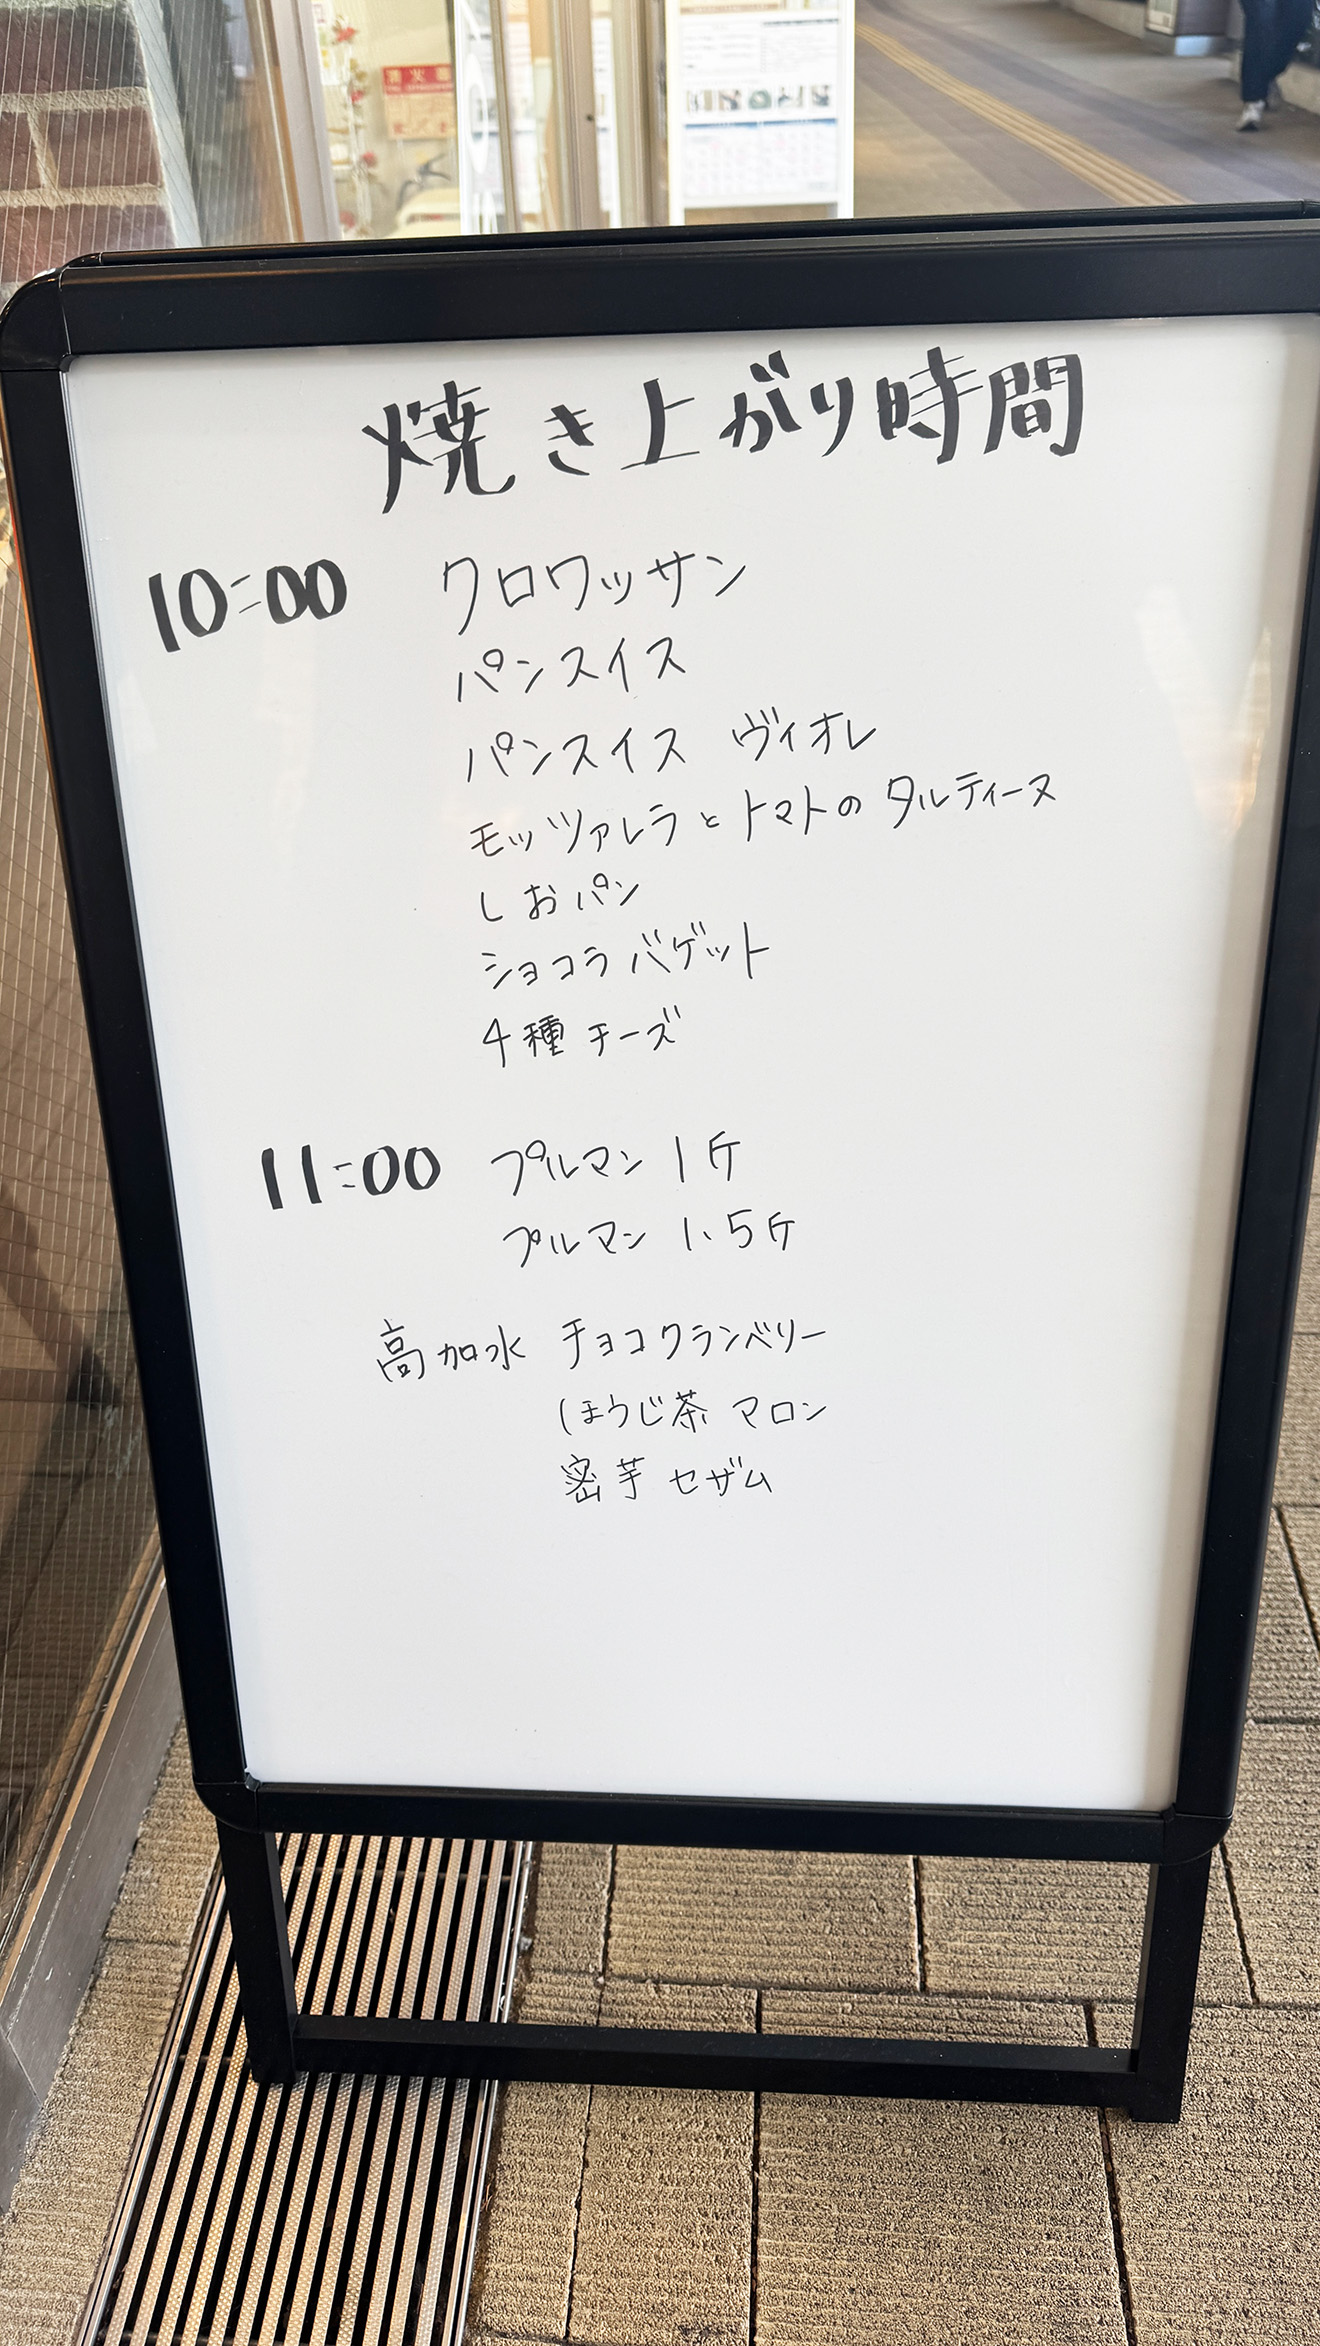 焼き上がり時間
10:00 クロワッサン
パンスイス
パンスイス ヴィオレ
モッツァレラとトマトの タルティーヌ
しおパン
ショコラ バゲット
4種 チーズ
11:00 プルマン 1斤
プルマン 1.5斤
高加水 チョコクランベリー
ほうじ茶 マロン
密芋 セザム